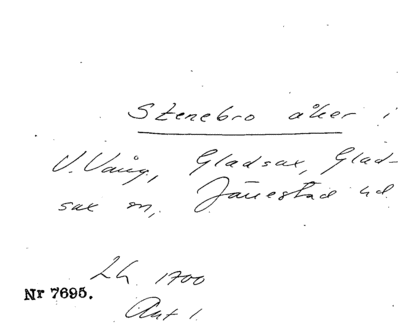 Stenebro åker i
V. Vång, Gladsax, Glad-
sax sn, Järrestad hd
Lh. 1700
Nr 7695.
Akt 1.